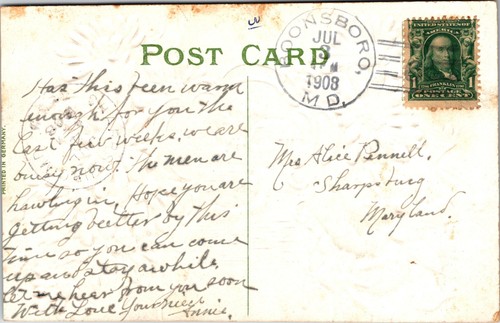 3
POST CARD
BOONSBORO,
JUL
3
M
1908
MD.
UNITED STATES OF AMERICA
1
ONE CENT
PRINTED IN GERMANY.
Has this been warm
enough for you the
last few weeks, we are
busy now. The men are
hawling in. Hope you are
getting better by this
time so you can come
up and stay awhile.
Let me hear from you soon
With Love Your niece
Annie.
Mrs Alice Pennell.
Sharpsburg
Maryland.